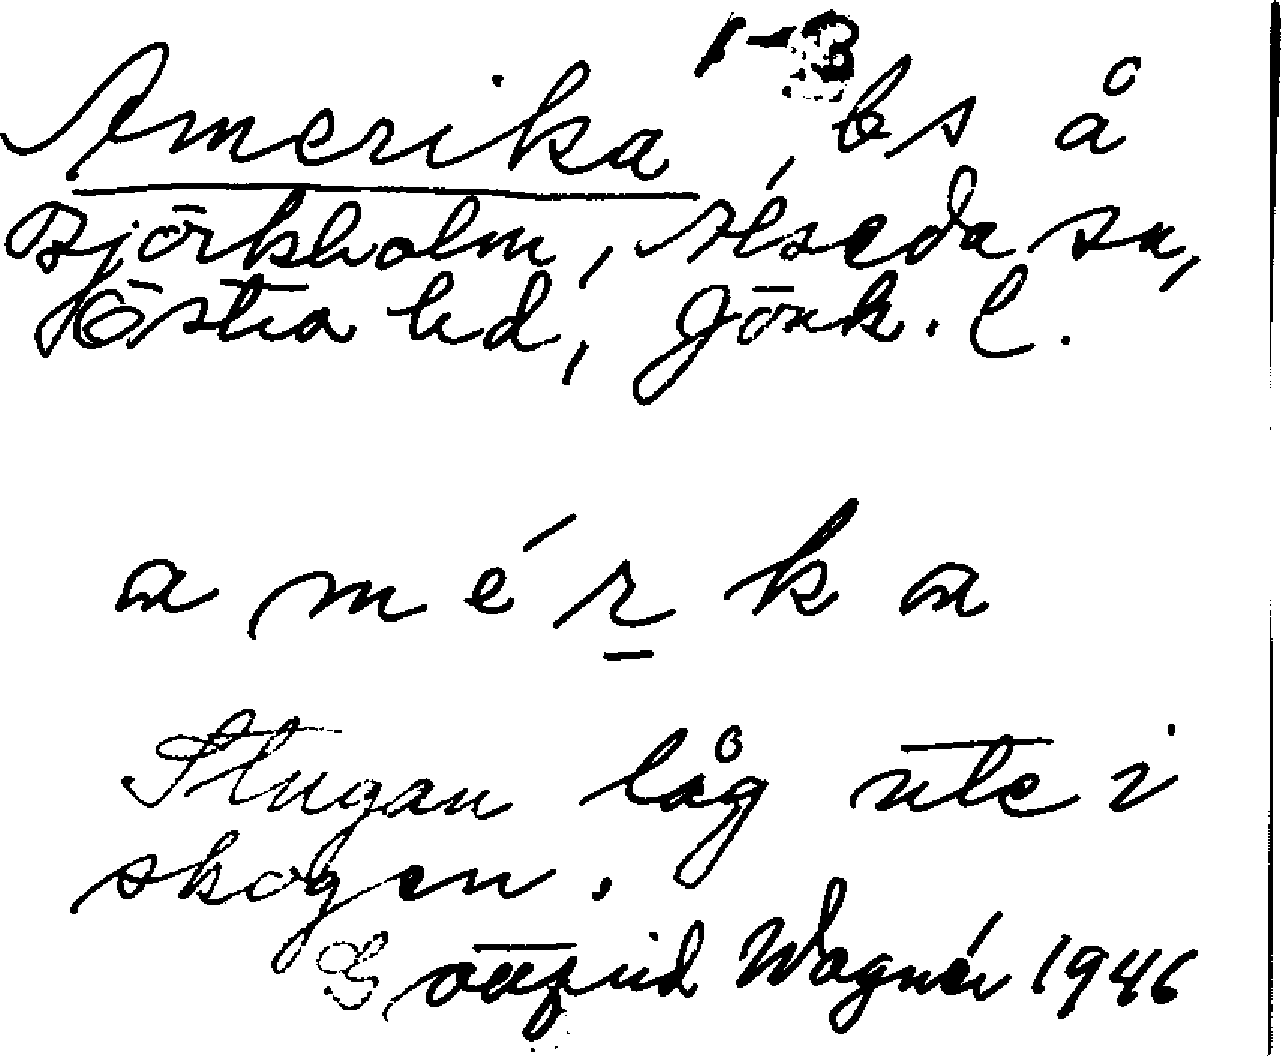 1-3
Amerika, bs å
Björkholm, Alseda sn,
Östra hd, Jönk. l.
a m é r k a
Stugan låg ute i
skogen.
Wagnér 1946